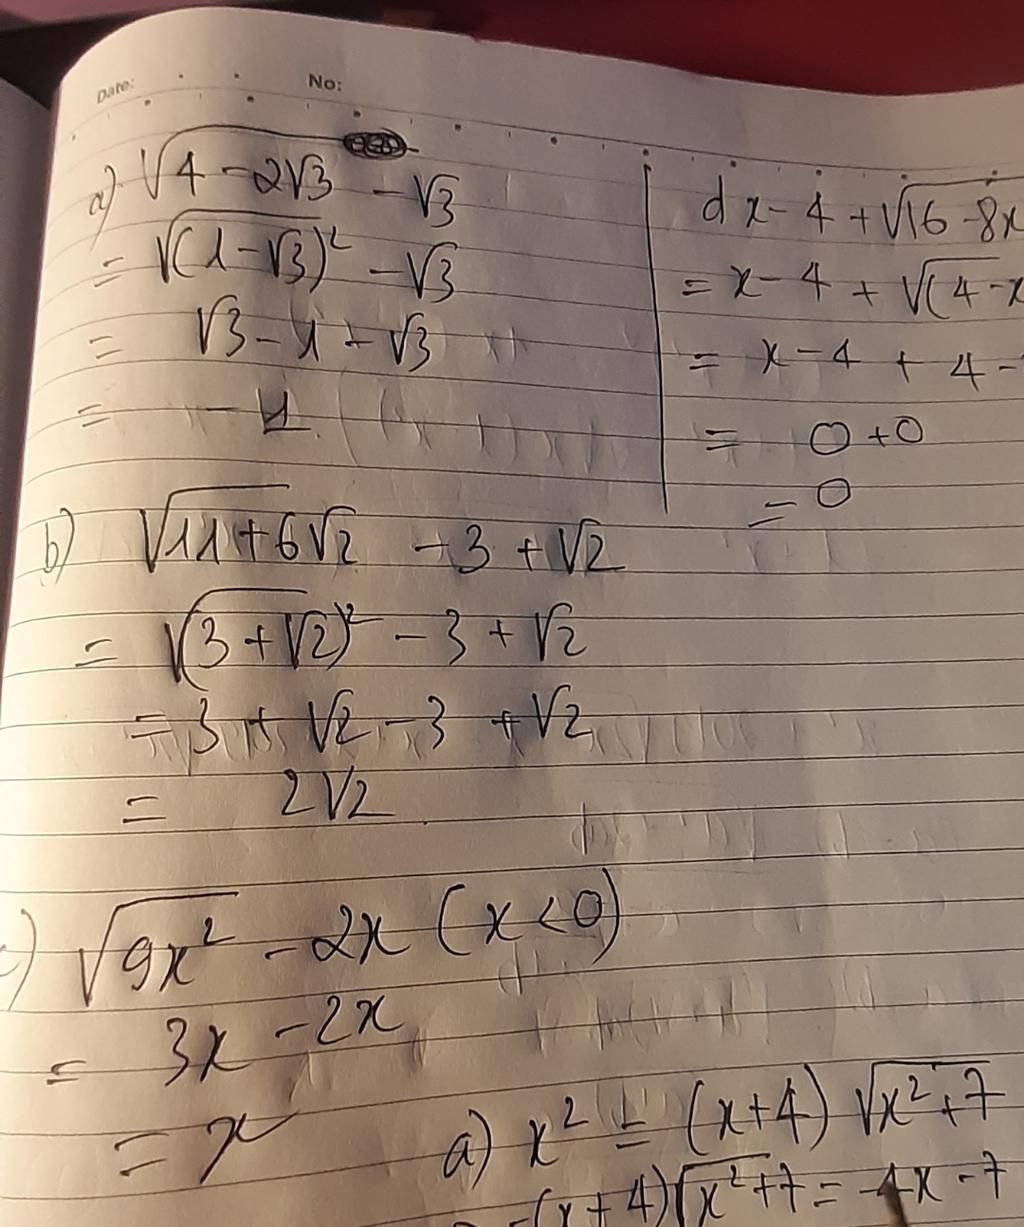 Date: No:
a) √4-2√3 -√3
= √(1-√3)² -√3
= √3-1-√3
= -1.
d x-4+√16-8x
= x-4+√(4-x
= x-4+4-
= 0+0
= 0
b) √11+6√2 -3+√2
= √(3+√2)² -3+√2
= 3+√2-3+√2
= 2√2.
c) √9x² -2x (x<0)
= 3x-2x
= x
a) x² = (x+4) √x²+7
-(x+4)√x²+7 = -4x-7